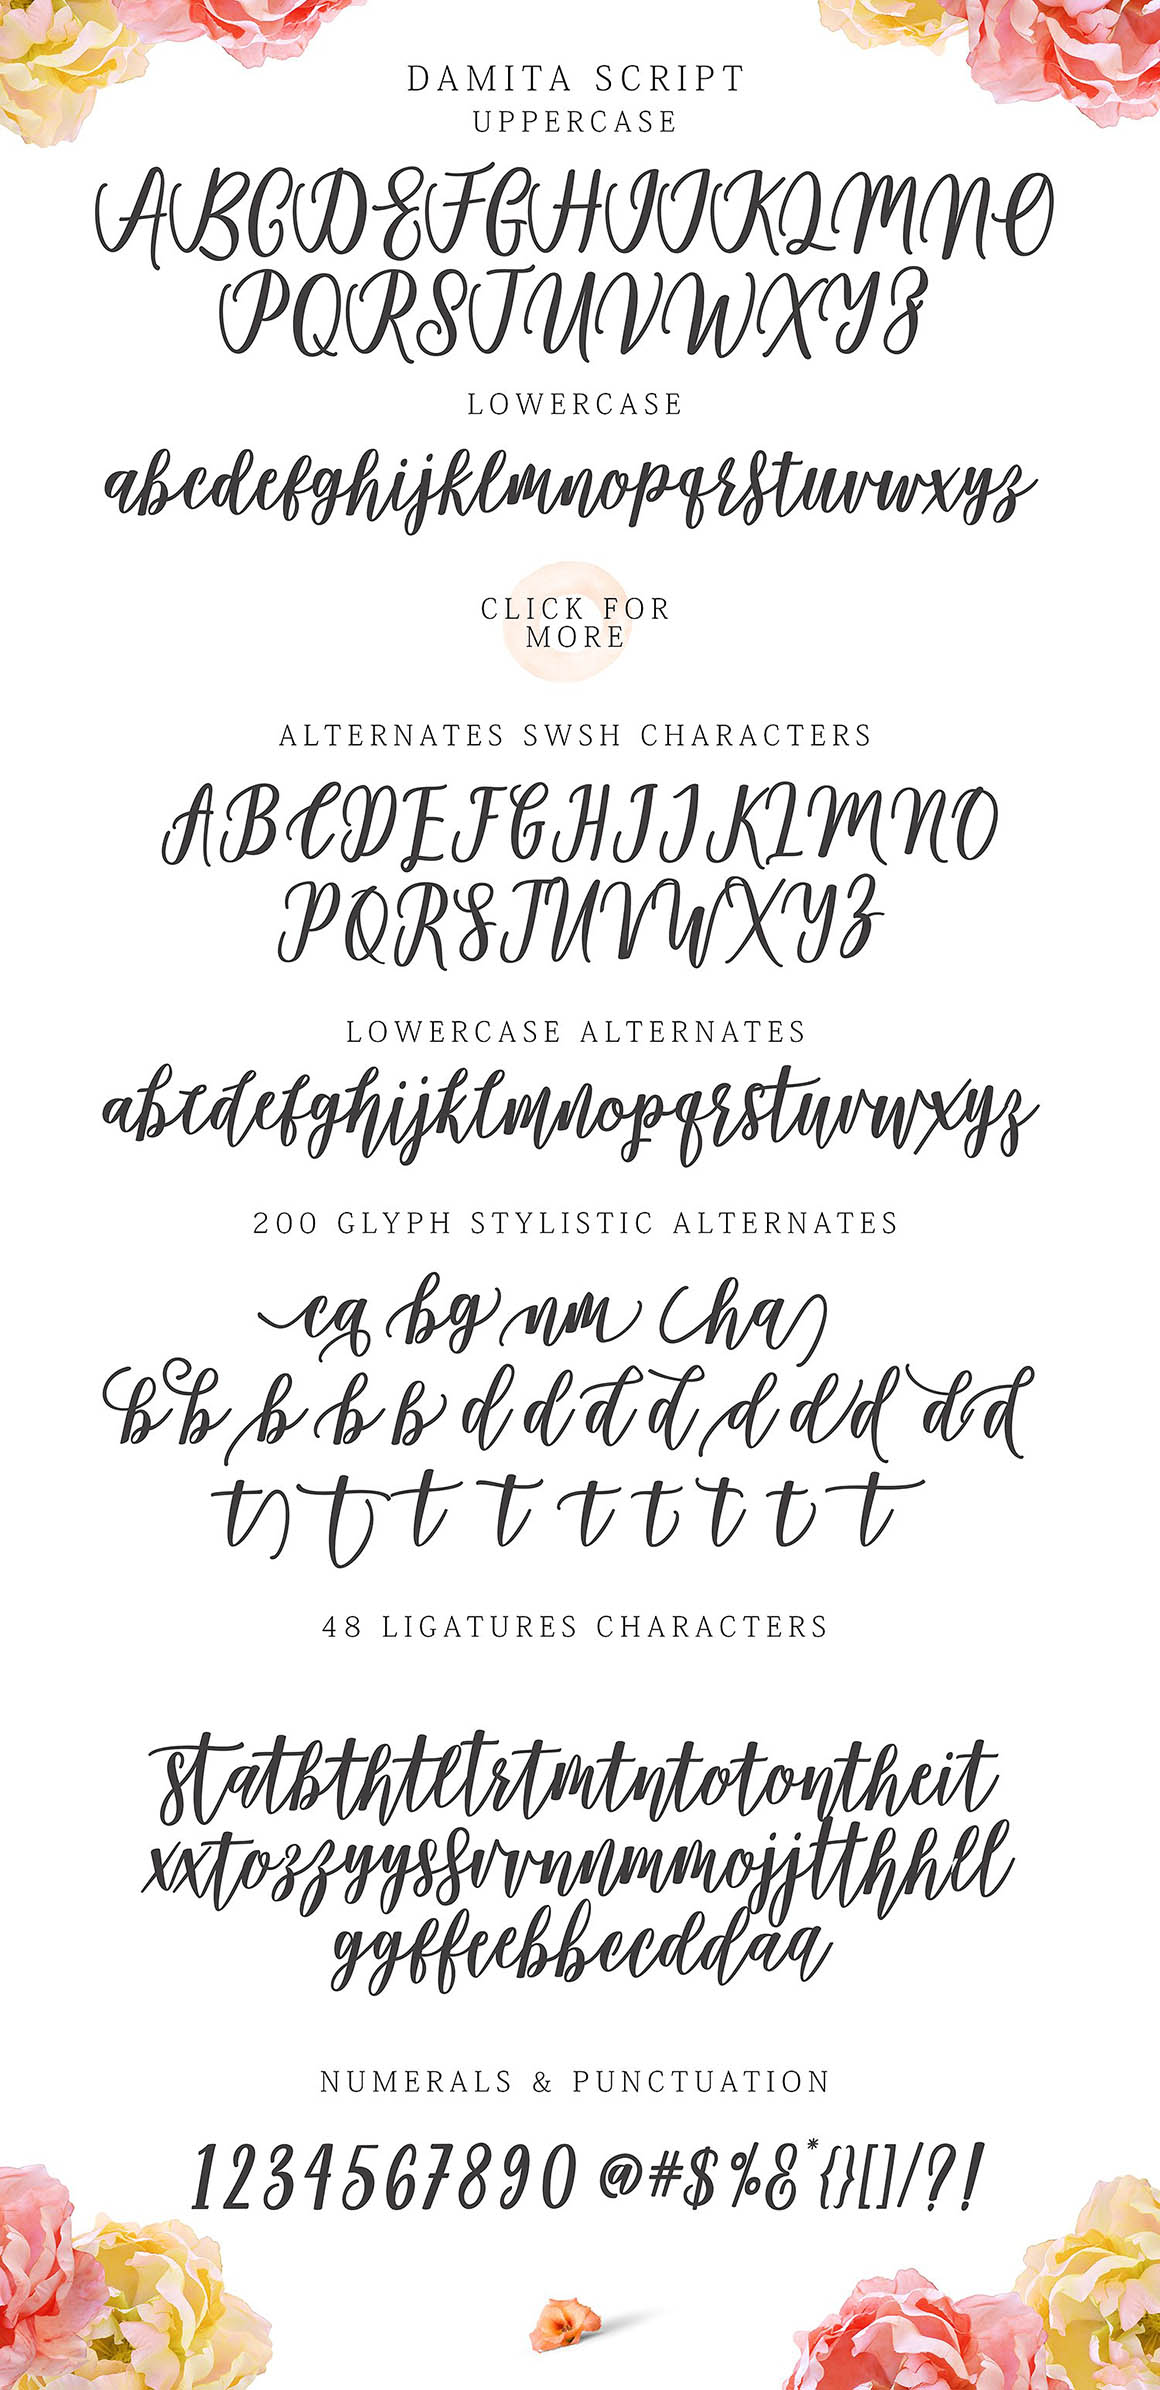 DAMITA SCRIPT
UPPERCASE
ABCDEFGHIJKLMNO
PQRSTUVWXYZ
LOWERCASE
abcdefghijklmnopqrstuvwxyz
CLICK FOR
MORE
ALTERNATES SWSH CHARACTERS
ABCDEFGHIJKLMNO
PQRSTUVWXYZ
LOWERCASE ALTERNATES
abcdefghijklmnopqrstuvwxyz
200 GLYPH STYLISTIC ALTERNATES
cq bg nm ha
b b b b b d d d d d d d d d
t t t t t t t t t
48 LIGATURES CHARACTERS
statbthtltrtmtntotontheit
xxtozzyyssvvnnmmojjtthhll
ggffeebbccddaa
NUMERALS & PUNCTUATION
1234567890 @#$%&*{}[]/?!